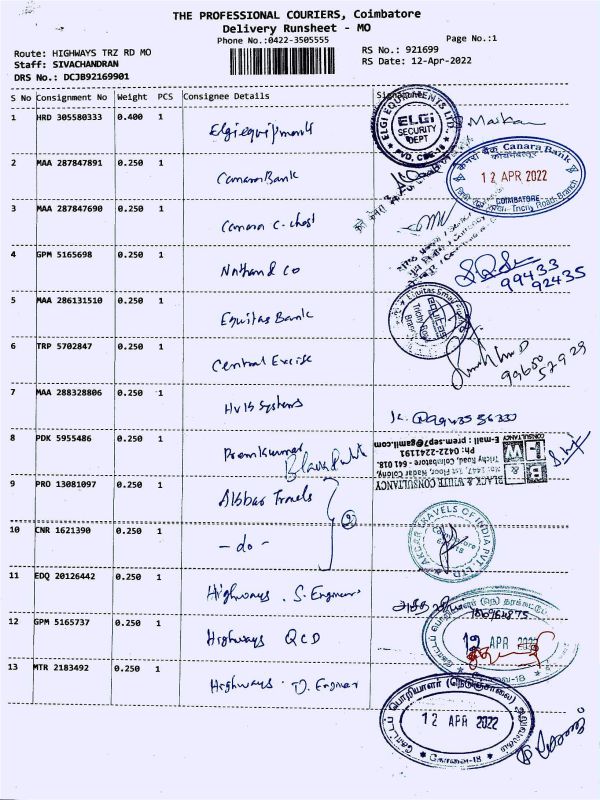 THE PROFESSIONAL COURIERS, Coimbatore
Delivery Runsheet - MO
Phone No.:0422-3505555
Page No.:1
Route: HIGHWAYS TRZ RD MO
RS No.: 921699
Staff: SIVACHANDRAN
RS Date: 12-Apr-2022
DRS No.: DCJB92169901
S No Consignment No Weight PCS Consignee Details
1 HRD 305580333 0.400 1 Elgi equipments
ELGI EQUIPMENTS LTD.
ELGI
SECURITY
DEPT
PVD, CBE-18
2 MAA 287847891 0.250 1 Canara Bank
केनरा बैंक Canara Bank
12 APR 2022
COIMBATORE
Trichy Road Branch
3 MAA 287847690 0.250 1 Canara C. chest
4 GPM 5165698 0.250 1 Nathan & Co
99433
92435
5 MAA 286131510 0.250 1 Equitas Bank
6 TRP 5702847 0.250 1 Central Excise
99650
52929
7 MAA 288328806 0.250 1 Hvls Systems
8 PDK 5955486 0.250 1 Premkumar
BLACK & WHITE CONSULTANCY
No: 1447, 1st Floor, Near Radar Colony,
Trichy Road, Coimbatore - 641 018.
Ph: 0422-2241191
E-mail : prem.sep7@gamil.com
B &
W
CONSULTANCY
9 PRO 13081097 0.250 1 Travels
10 CNR 1621390 0.250 1 - do -
AKBAR TRAVELS OF INDIA PVT. LTD.
11 EDQ 20126442 0.250 1 Highways . S. Engineer
12 GPM 5165737 0.250 1 Highways QCD
APR 2022
13 MTR 2183492 0.250 1 Highways . D. Engineer
கோட்டப் பொறியாளர் (நெடுஞ்சாலை) அலுவலகம்
12 APR 2022
கோவை-18